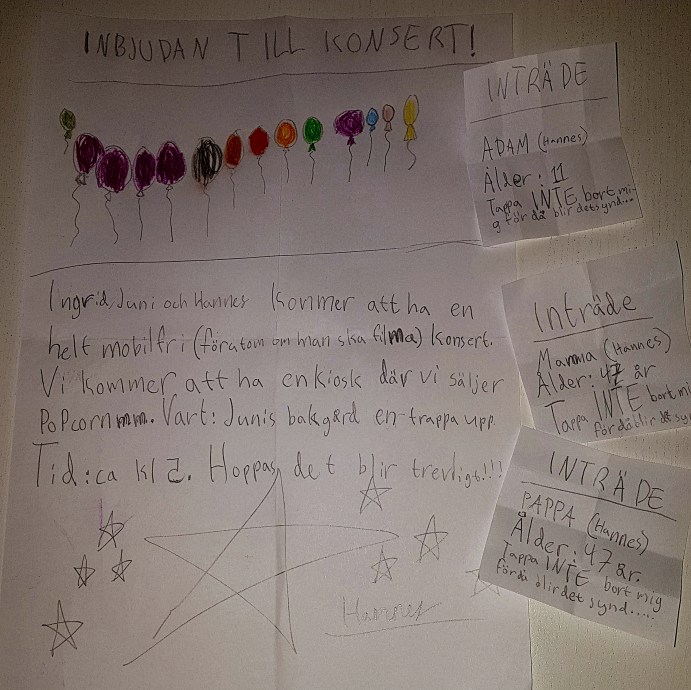 INBJUDAN TILL KONSERT!
Ingrid, Juni och Hannes kommer att ha en
helt mobilfri (förutom om man ska filma) konsert.
Vi kommer att ha en kiosk där vi säljer
PoPcorn mm. Vart: Junis bakgård en-trappa upp.
Tid: ca kl 2. Hoppas det blir trevligt!!!
Hannes
INTRÄDE
ADAM (Hannes)
Ålder: 11
Tappa INTE bort mi-
g för då blir det synd...
Inträde
Mamma (Hannes)
Ålder: 47 år
Tappa INTE bort mi
för då blir det syn
INTRÄDE
PAPPA (Hannes)
Ålder: 47 år.
Tappa INTE bort mig
för då blir det synd.....